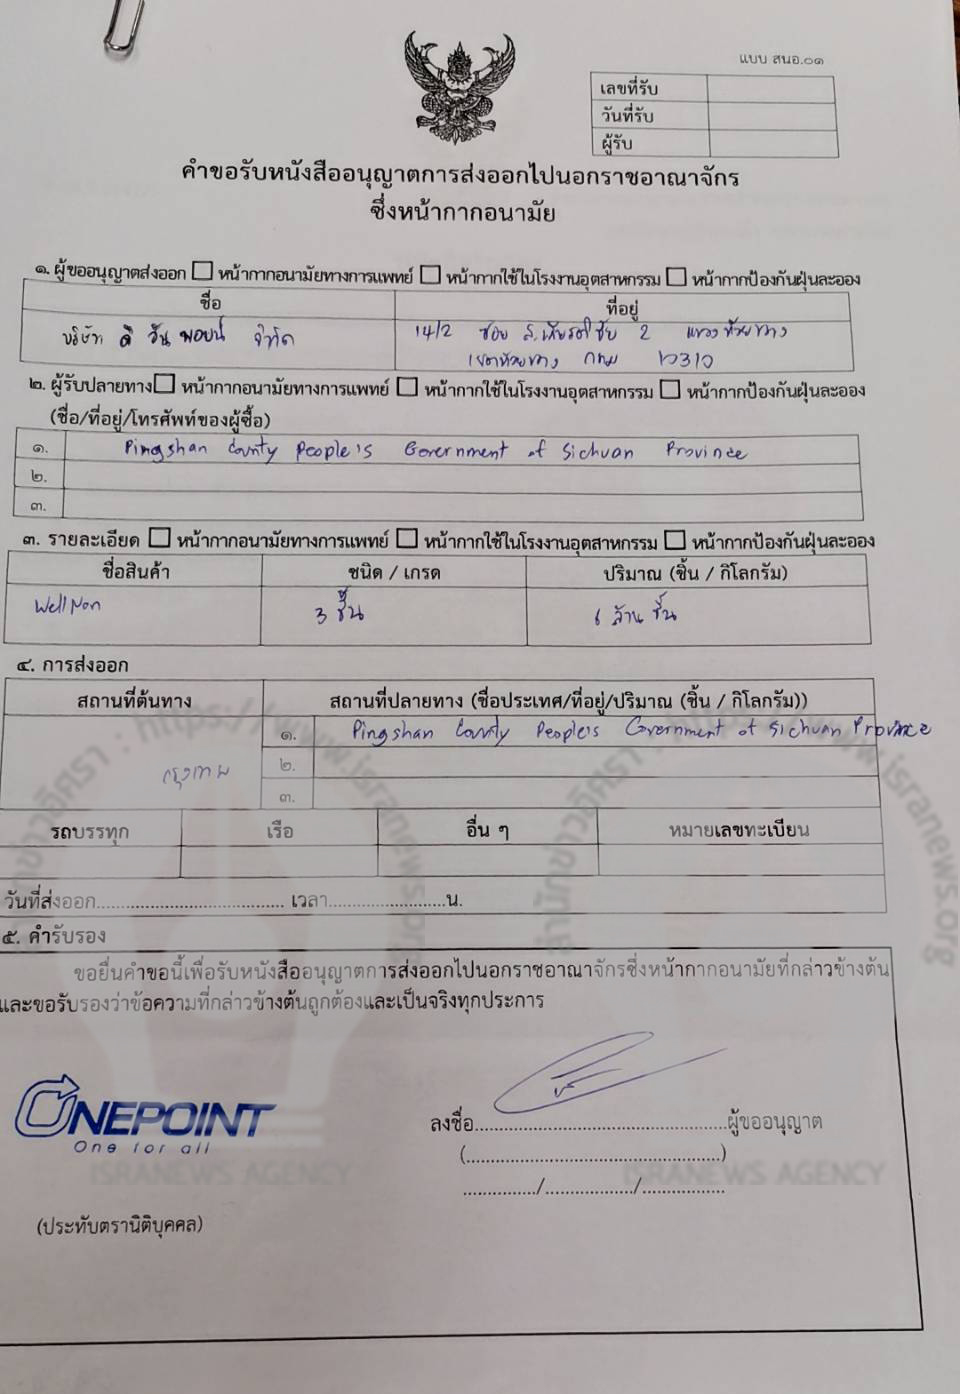 แบบ สนอ.๐๑
เลขที่รับ
วันที่รับ
ผู้รับ
คำขอรับหนังสืออนุญาตการส่งออกไปนอกราชอาณาจักร
ซึ่งหน้ากากอนามัย
๑. ผู้ขออนุญาตส่งออก ☐ หน้ากากอนามัยทางการแพทย์ ☐ หน้ากากใช้ในโรงงานอุตสาหกรรม ☐ หน้ากากป้องกันฝุ่นละออง
ชื่อ ที่อยู่
บริษัท ดิ วัน พอยน์ จำกัด 14/2 ซอย 2 แขวงห้วยขวาง
เขตห้วยขวาง กทม 10310
๒. ผู้รับปลายทาง ☐ หน้ากากอนามัยทางการแพทย์ ☐ หน้ากากใช้ในโรงงานอุตสาหกรรม ☐ หน้ากากป้องกันฝุ่นละออง
(ชื่อ/ที่อยู่/โทรศัพท์ของผู้ซื้อ)
๑. Pingshan County People's Government of Sichuan Province
๒.
๓.
๓. รายละเอียด ☐ หน้ากากอนามัยทางการแพทย์ ☐ หน้ากากใช้ในโรงงานอุตสาหกรรม ☐ หน้ากากป้องกันฝุ่นละออง
ชื่อสินค้า ชนิด / เกรด ปริมาณ (ชิ้น / กิโลกรัม)
WellNon 3 ชั้น 6 ล้าน ชิ้น
๔. การส่งออก
สถานที่ต้นทาง สถานที่ปลายทาง (ชื่อประเทศ/ที่อยู่/ปริมาณ (ชิ้น / กิโลกรัม))
๑. Pingshan County People's Government of Sichuan Province
กรุงเทพ ๒.
๓.
รถบรรทุก เรือ อื่น ๆ หมายเลขทะเบียน
วันที่ส่งออก.................................. เวลา......................น.
๕. คำรับรอง
ขอยื่นคำขอนี้เพื่อรับหนังสืออนุญาตการส่งออกไปนอกราชอาณาจักรซึ่งหน้ากากอนามัยที่กล่าวข้างต้น
และขอรับรองว่าข้อความที่กล่าวข้างต้นถูกต้องและเป็นจริงทุกประการ
ONEPOINT
One for all
ลงชื่อ.............................................ผู้ขออนุญาต
(.............................................)
............./................/...............
(ประทับตรานิติบุคคล)
สำนักข่าวอิศรา : https://www.isranews.org
สำนักข่าวอิศรา : https://www.isranews.org
ISRANEWS AGENCY
ISRANEWS AGENCY